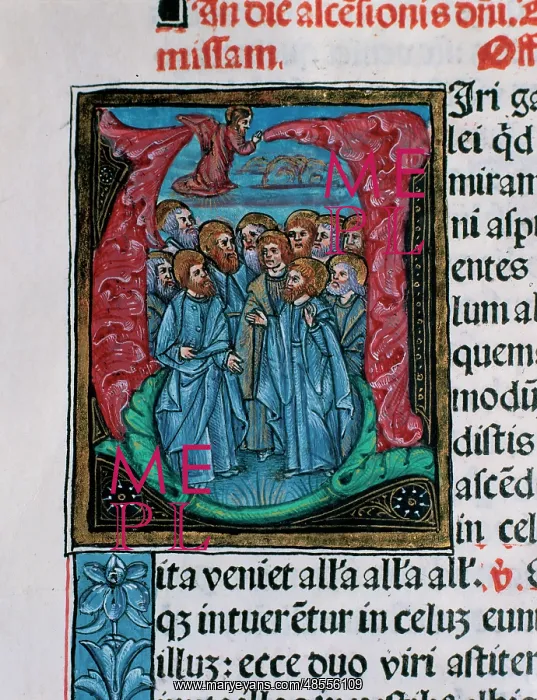 An die ascēsionis dñi.
missam. Off
Jri ga
lei q̄d
miram
ni asp
entes
lum al
quem
modū
distis
ascēd
in cel
ita veniet all'a all'a all'. v̄.
qz intuerētur in celuz eun
illuz: ecce duo viri astiter
ME
PL
ME
PL
www.maryevans.com/48556109